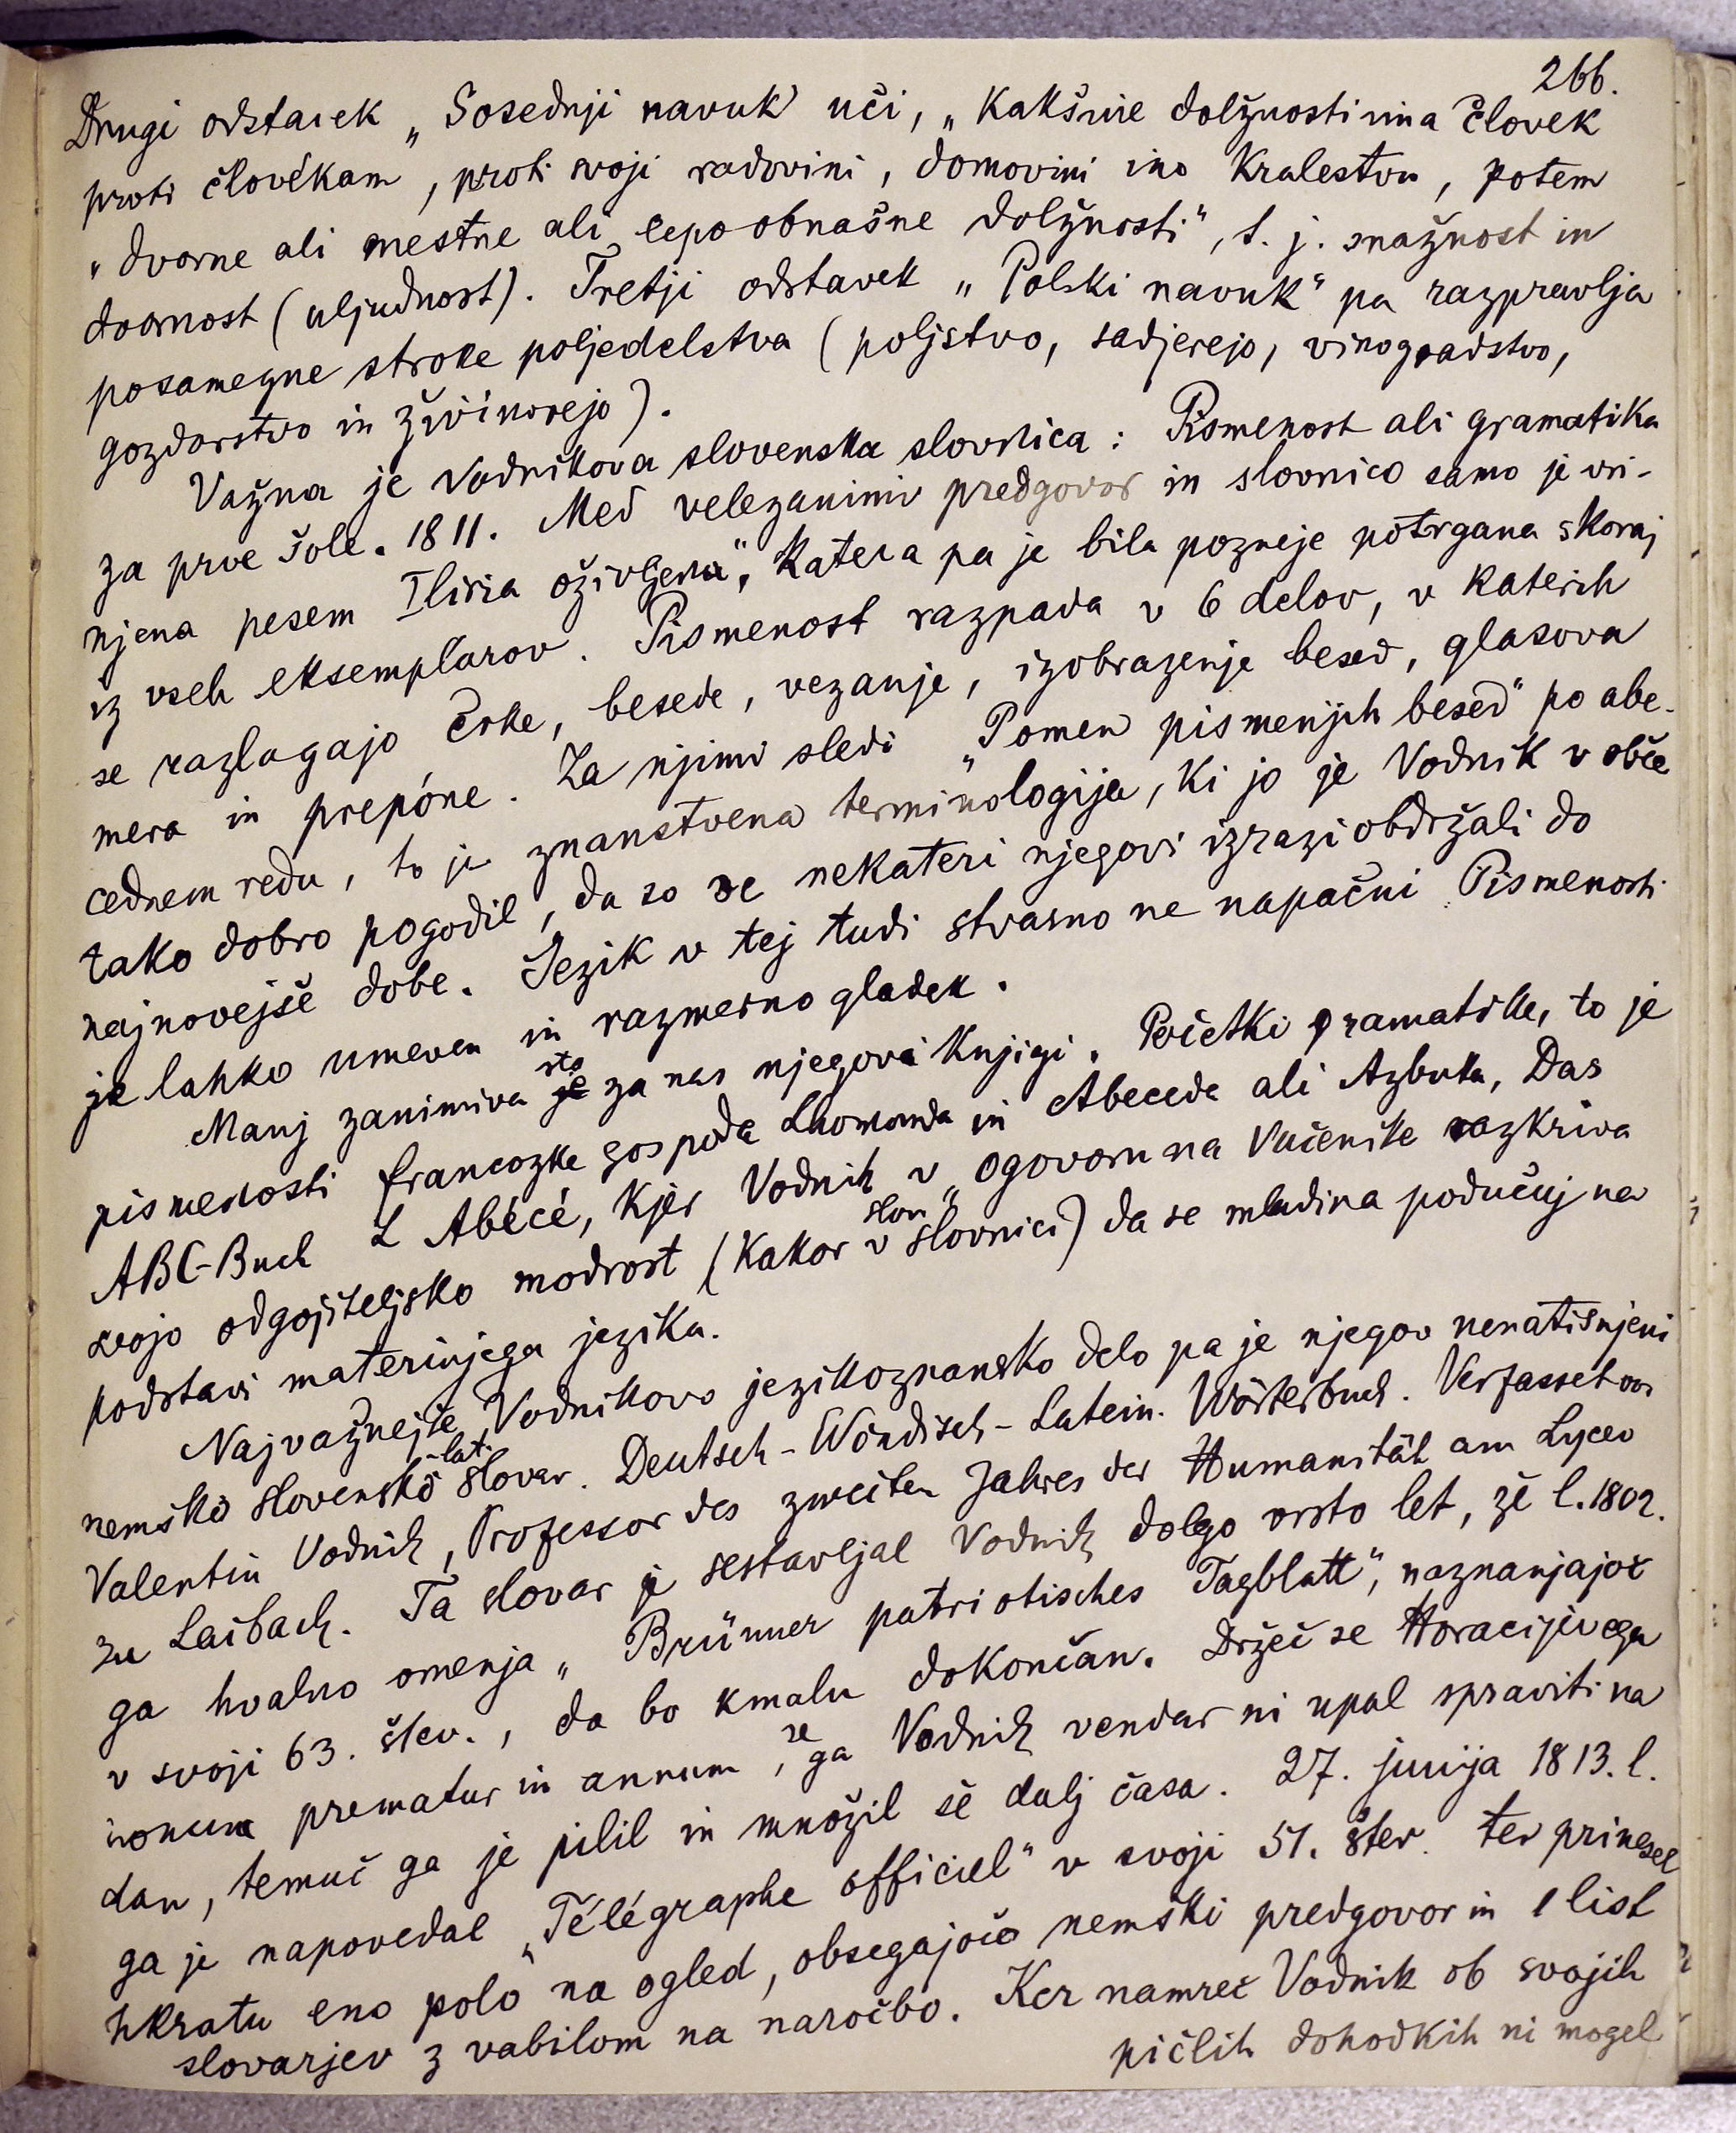 266.
Drugi odstavek „Sosednji navuk" uči, „kakšine dolžnosti ima človek
proti človékam, proti svoji radovini, domovini ino kralestvu, potem
„dvorne ali mestne ali lepoobnašne dolžnosti", t. j. snažnost in
dvornost (uljudnost). Tretji odstavek „Polski navuk" pa razpravlja
posamezne stroke poljedelstva (poljstvo, sadjerejo, vinogradstvo,
gozdarstvo in živinorejo).
Važna je Vodnikova slovenska slovnica: Pismenost ali gramatika
za prve šole. 1811. Med velezanimiv predgovor in slovnico samo je vri-
njena pesem Iliria oživljena", katera pa je bila pozneje potrgana skoraj
iz vseh eksemplarov. Pismenost razpada v 6 delov, v katerih
se razlagajo črke, besede, vezanje, izobrazenje besed, glasova
mera in prepóne. Za njimi sledi „Pomen pismenjih besed" po abe-
cednem redu, to je znanstvena terminologija, ki jo je Vodnik v obče
tako dobro pogodil, da so se nekateri njegovi izrazi obdržali do
najnovejše dobe. Jezik v tej tudi stvarno ne napačni Pismenosti
je lahko umeven in razmerno gladek.
Manj zanimiva je sta za nas njegovi knjigi. Početki gramatike, to je
pismenosti francozke gospoda Lhomonda in Abeceda ali Azbuka, Das
ABC-Buch L Abécé, kjer Vodnik v „ogovoru na Vučenike razkriva
svojo odgojiteljsko modrost (kakor v slov slovnici) da se mladina podučuj na
podstavi materinjega jezika.
Najvažnejše Vodnikovo jezikoznansko delo pa je njegov nenatisnjeni
nemško slovensko -lat. slovar. Deutsch-Windisch-Latein. Wörterbuch. Verfasset von
Valentin Vodnik, Professor des zweiten Jahres der Humanität am Lyceo
zu Laibach. Ta slovar je sestavljal Vodnik dolgo vrsto let, že l. 1802.
ga hvalno omenja „Brünner patriotisches Tagblatt", naznanjajoč
v svoji 63. štev., da bo kmalu dokončan. Držeč se Horacijevega
nonum prematur in annum, se ga Vodnik vendar ni upal spraviti na
dan, temuč ga je pilil in množil še dalj časa. 27. junija 1813. l.
ga je napovedal „Télégraphe officiel" v svoji 51. štev. ter prinesel
hkratu eno polo na ogled, obsegajočo nemški predgovor in 1 list
slovarjev z vabilom na naročbo. Ker namreč Vodnik ob svojih
pičlih dohodkih ni mogel